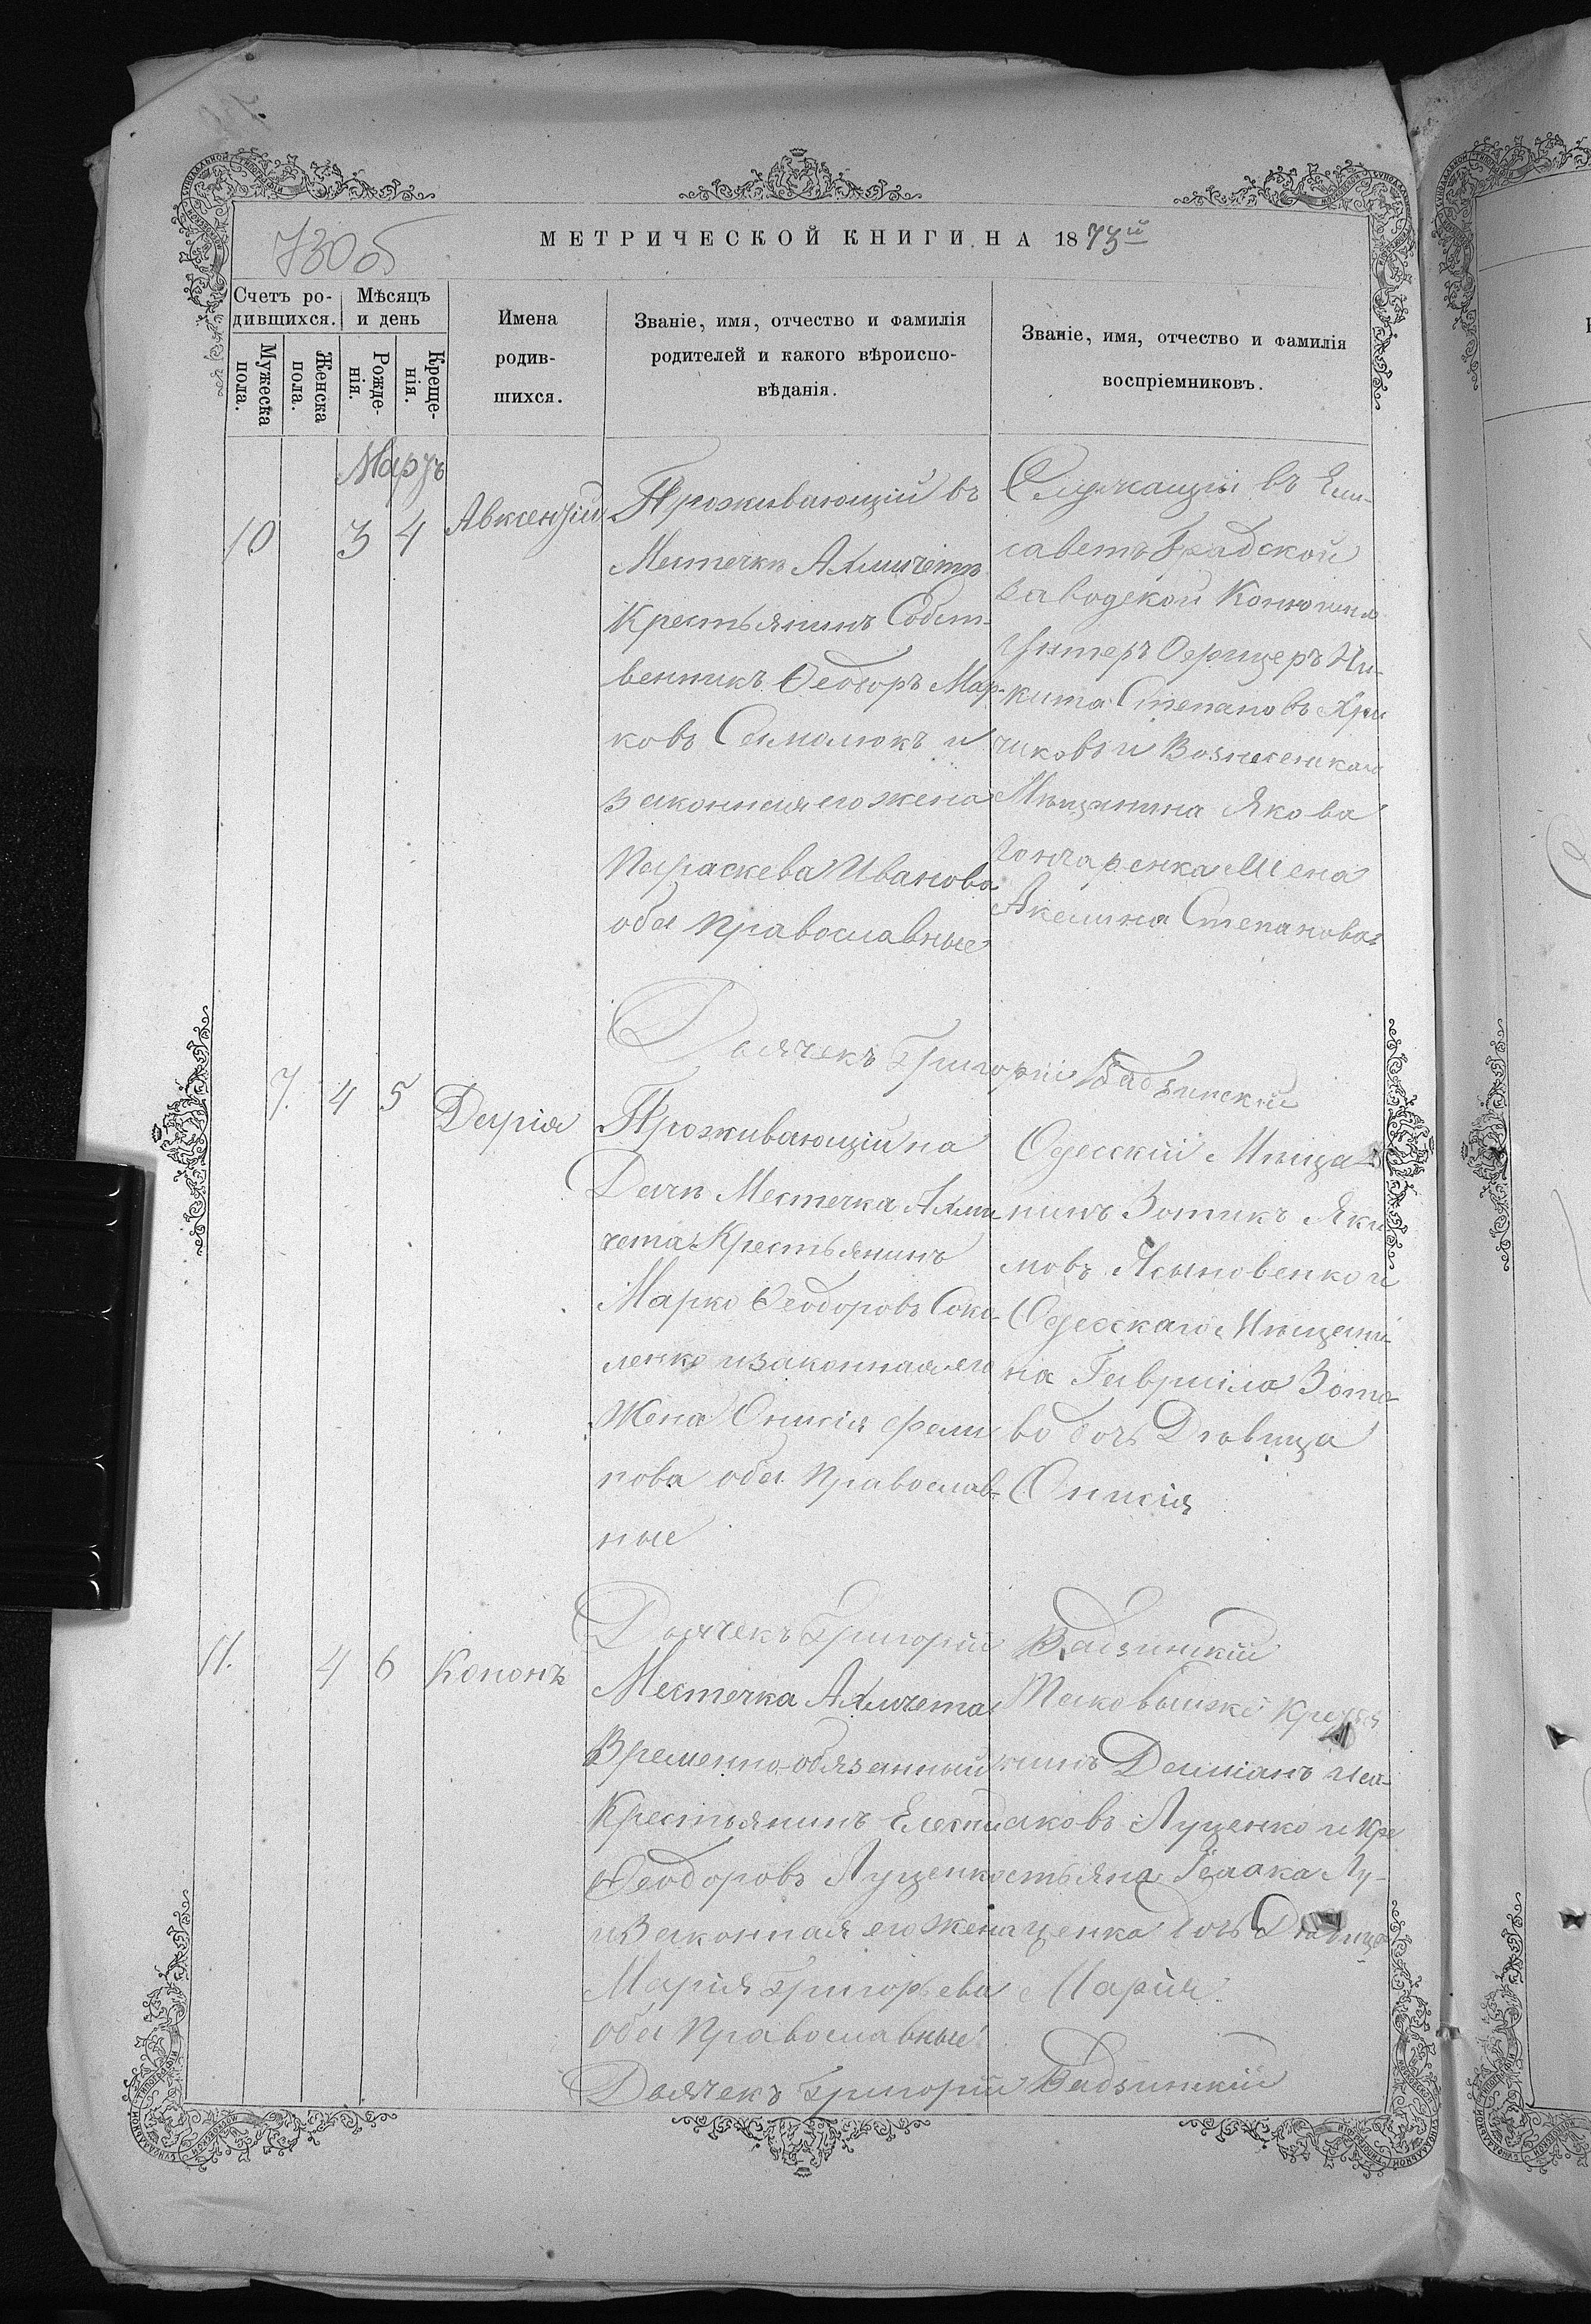 730об
МЕТРИЧЕСКОЙ КНИГИ НА 1873й
Счетъ ро-
дившихся.
Мѣсяцъ
и день
Мужеска
пола.
Женска
пола.
Рожде-
нія.
Креще-
нія.
Имена
родив-
шихся.
Званіе, имя, отчество и фамилія
родителей и какого вѣроиспо-
вѣданія.
Званіе, имя, отчество и фамилія
воспріемниковъ.
Мартъ
10
3
4
Авксентій
Проживающій въ
Местечкѣ Ахмичетѣ
Крестьянинъ Собст-
венникъ Ѳеодоръ Мар-
ковъ и
законная его жена
Параскева Иванова
оба православные
Служащій въ Ели-
саветъ Градской
Заводской Конюшни
Унтеръ Офицеръ Ни-
кита Степановъ
и Вознесенскаго
Мѣщанина Якова
Гончаренка Жена
Акелина Степанова
Дьячекъ Григорій Вадзинскій
7.
4
5
Дарія
Проживающій на
Дачѣ Местечка Ахми-
чета Крестьянинъ
Марко Ѳеодоровъ Соко-
ленко и законная его
жена Онисія Фили-
пова оба Православ-
ные
Одесскій Мѣща-
нинъ Зотикъ Яки-
мовъ и
Одесскаго Мѣщани-
на Гавріила Зото-
во дочь Дѣвица
Онисія
Дьячекъ Григорій Вадзинскій
11.
4
6
Кононъ
Местечка Ахмичета
Временно-обязанный
Крестьянинъ
Ѳеодоровъ Луценко
и Законная его жена
Марія Григорьева
оба Православные
Крестья-
нинъ Даміанъ Иса-
аковъ Луценко и Кре
стьяна Исаака Лу-
ценка дочь Дѣвица
Марія
Дьячекъ Григорій Вадзинскій